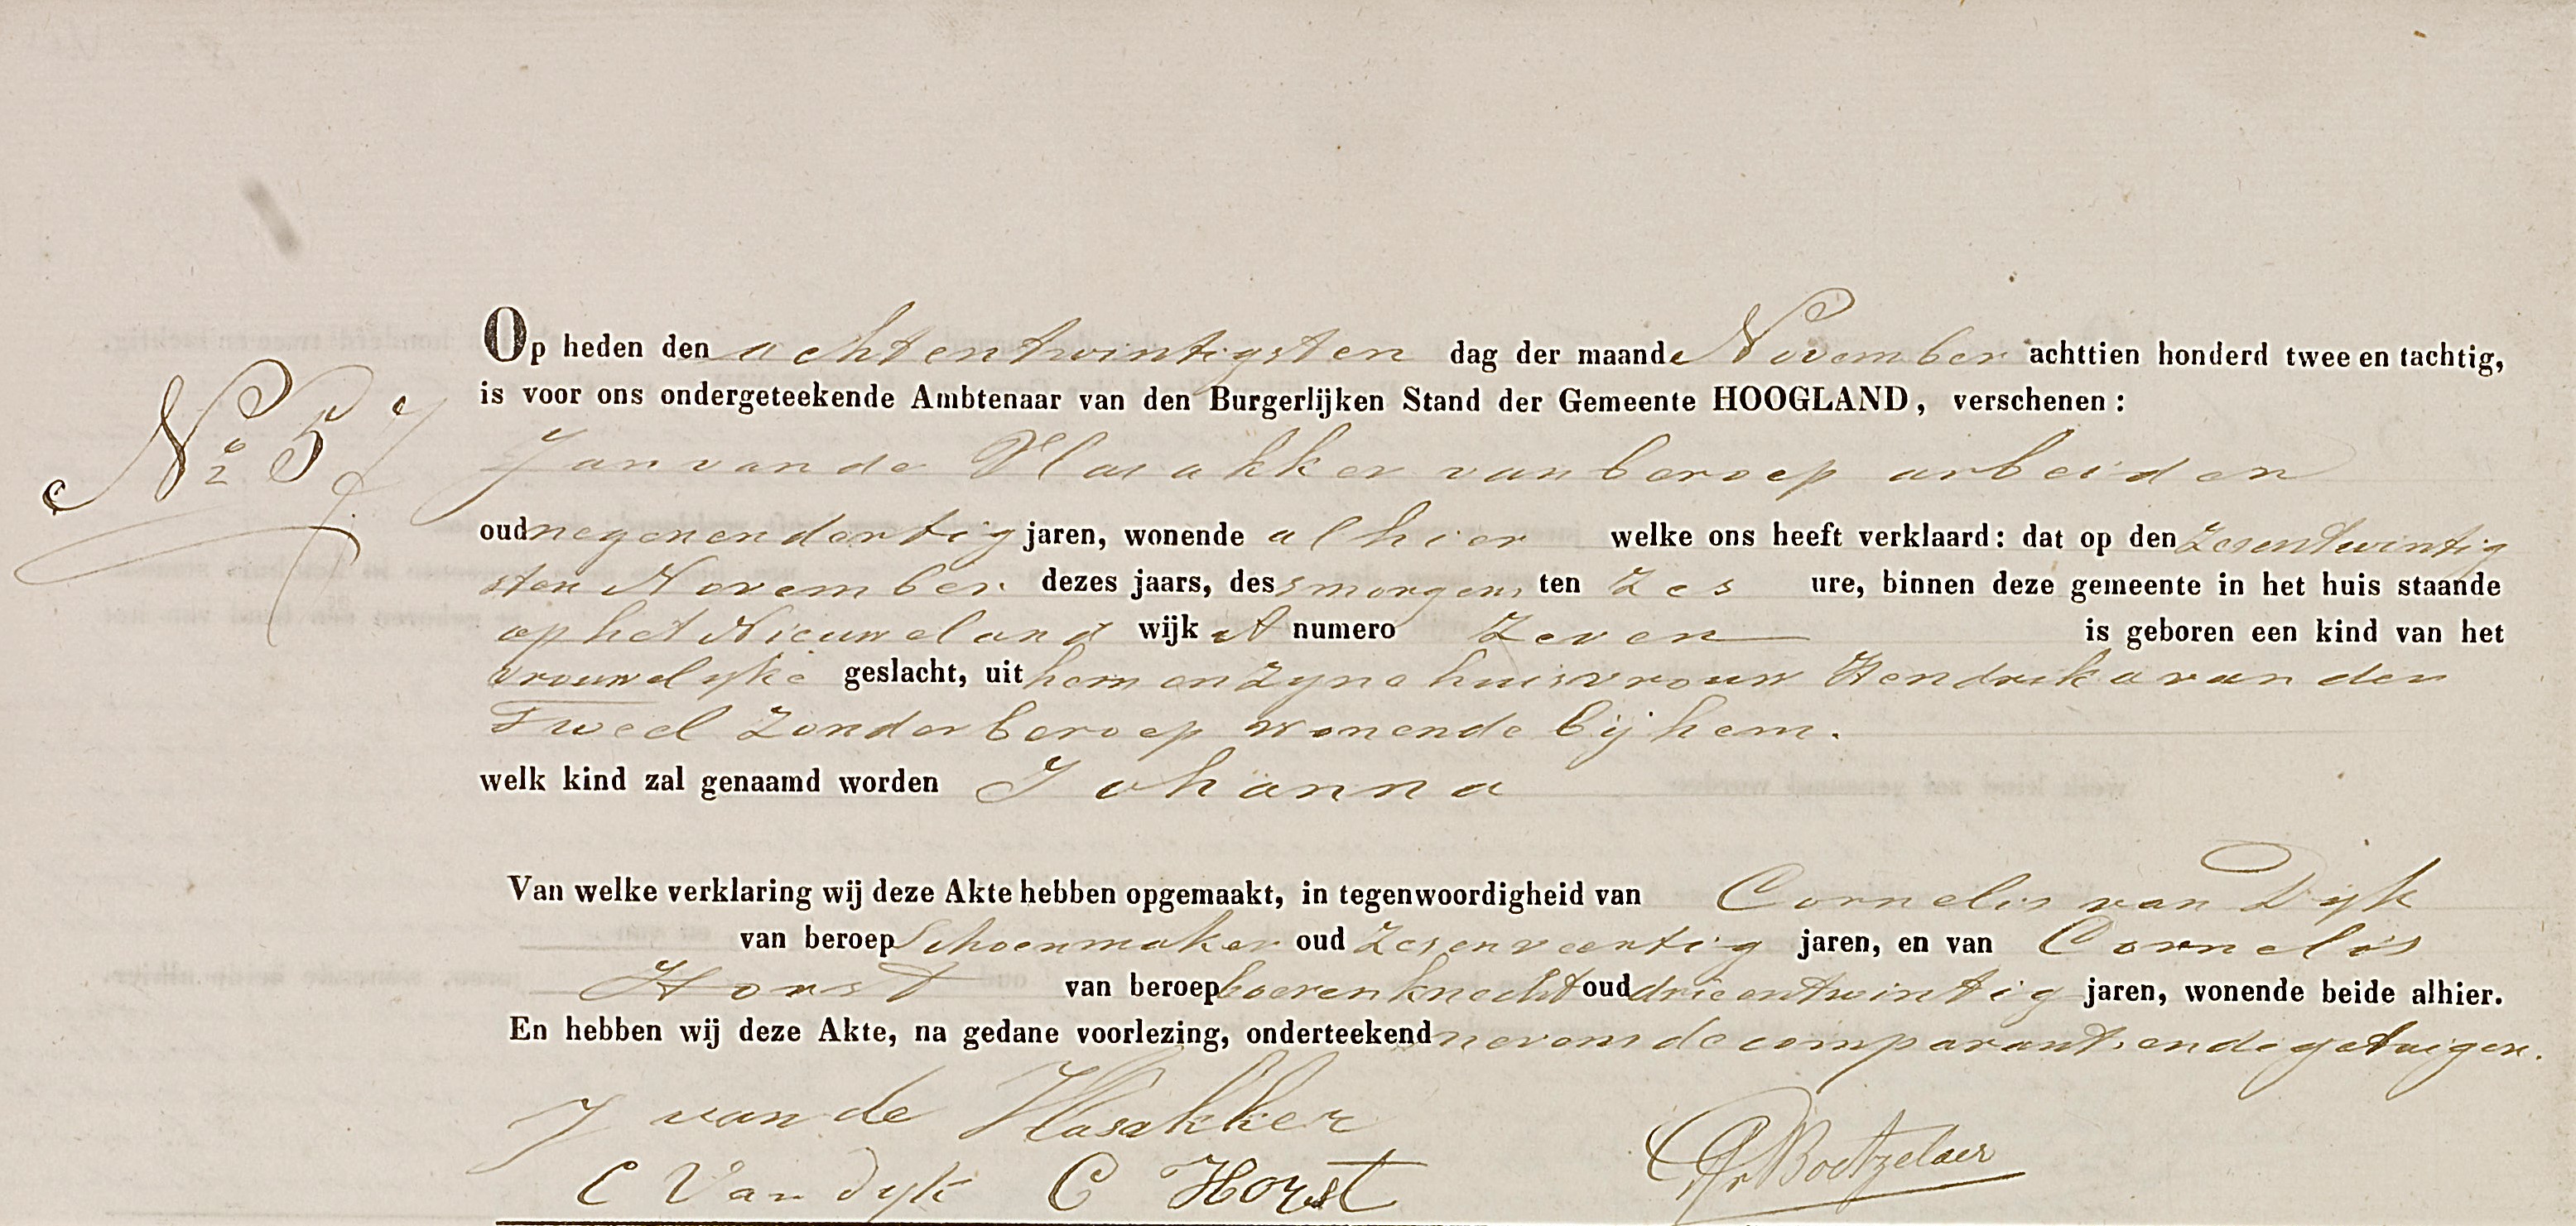 Op heden den achtentwintigsten dag der maand November achttien honderd twee en tachtig,
is voor ons ondergeteekende Ambtenaar van den Burgerlijken Stand der Gemeente HOOGLAND, verschenen:
No 57
Jan van de Vlasakker van beroep arbeider
oud negenendertig jaren, wonende alhier welke ons heeft verklaard: dat op den zesentwintig
sten November dezes jaars, des smorgens ten zes ure, binnen deze gemeente in het huis staande
op het Nieuweland wijk A numero zeven is geboren een kind van het
vrouwelyke geslacht, uit hem en zyne huisvrouw Hendrika van den
Tweel zonder beroep wonende bij hem.
welk kind zal genaamd worden Johanna
Van welke verklaring wij deze Akte hebben opgemaakt, in tegenwoordigheid van Cornelis van Dyk
van beroep Schoenmaker oud zesenveertig jaren, en van Cornelis
Horst van beroep boerenknecht oud drieentwintig jaren, wonende beide alhier.
En hebben wij deze Akte, na gedane voorlezing, onderteekend nevens de comparant en de getuigen.
J van de Vlasakker
C Van Dyk C Horst Boetzelaer